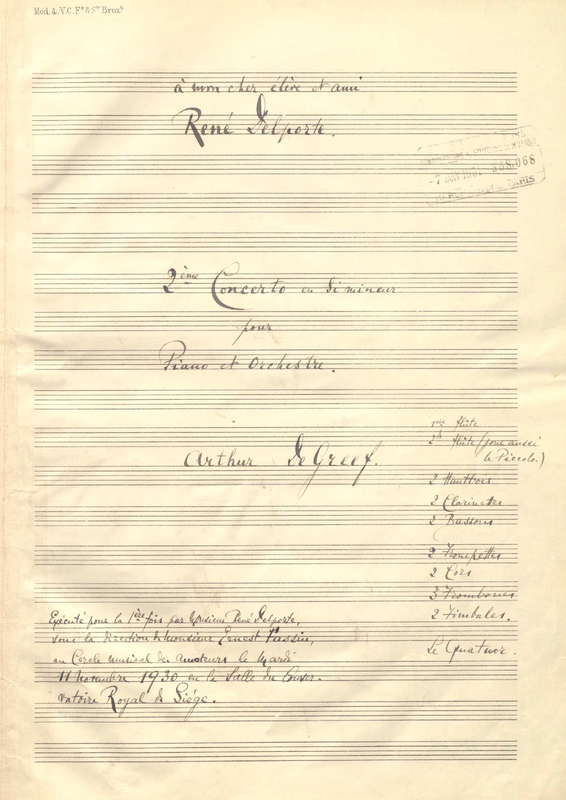 Mod. 4. V. C. Fs & Sr Brux.s
à mon cher élève et ami
René Delporte.
-7 868.068
PARIS
2ème Concerto en Si mineur
pour
Piano et Orchestre.
Arthur De Greef.
1re flûte
2d flûte (joue aussi
le Piccolo.)
2 Hautbois
2 Clarinettes
2 Bassons
2 Trompettes
2 Cors
3 Trombones
2 Timbales.
Le Quatuor.
Exécuté pour la 1ère fois par Monsieur René Delporte,
sous la direction de Monsieur Ernest Fassin,
au Cercle musical des amateurs le Mardi
11 Novembre 1930 en la Salle du Conser-
vatoire Royal de Liége.